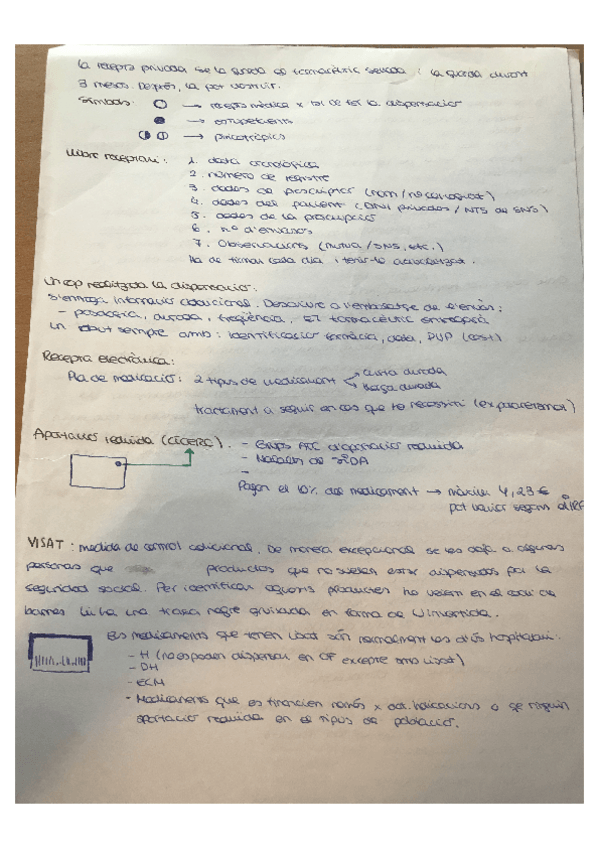 La recepta privada se la queda el farmacèutic segellada i la guarda durant
3 mesos. Després, la pot destruir.
Símbols: → recepta mèdica x tal de fer la dispensació
→ estupefaents
→ psicotròpics
Llibre receptari: 1. data cronològica
2. número de registre
3. dades de prescriptor (nom / nº col·legiat)
4. dades del pacient (DNI privades / NTS de SNS)
5. dades de la prescripció
6. nº d'envasos
7. Observacions (mutua / SNS, etc.)
Ha de firmar cada dia i tenir-lo actualitzat.
Un cop realitzada la dispensació:
S'entrega informació addicional. Descriure a l'embalatge de l'envàs:
- posologia, durada, freqüència, el farmacèutic
sempre amb: identificació farmàcia, data, PVP (cost)
Recepta electrònica:
Pla de medicació: 2 tipus de medicament curta durada
llarga durada
tractament a seguir en cas que te necessiti (ex paracetamol)
Aportació reduïda (CÍCERO). - Grups ATC d'aportació reduïda
- Malalts de SIDA
-
Pagen el 10% del medicament → màxim 4,23 €
pot variar segons
VISAT: mesura de control addicional. De manera excepcional se les a algunes
personas que productos que no suelen estar dispensados por la
seguridad social. Per identificar aquests productes ho veiem en el codi de
barres hi ha una franja negra gruixuda en forma de U invertida.
Els medicaments que tenen visat són normalment els d'ús hospitalari:
- H (no es poden dispensar en OF excepte amb visat)
- DH
- ECM
- Medicaments que es financien només x det. indicacions o qe tinguin
aportació reduïda en el tipus de població.